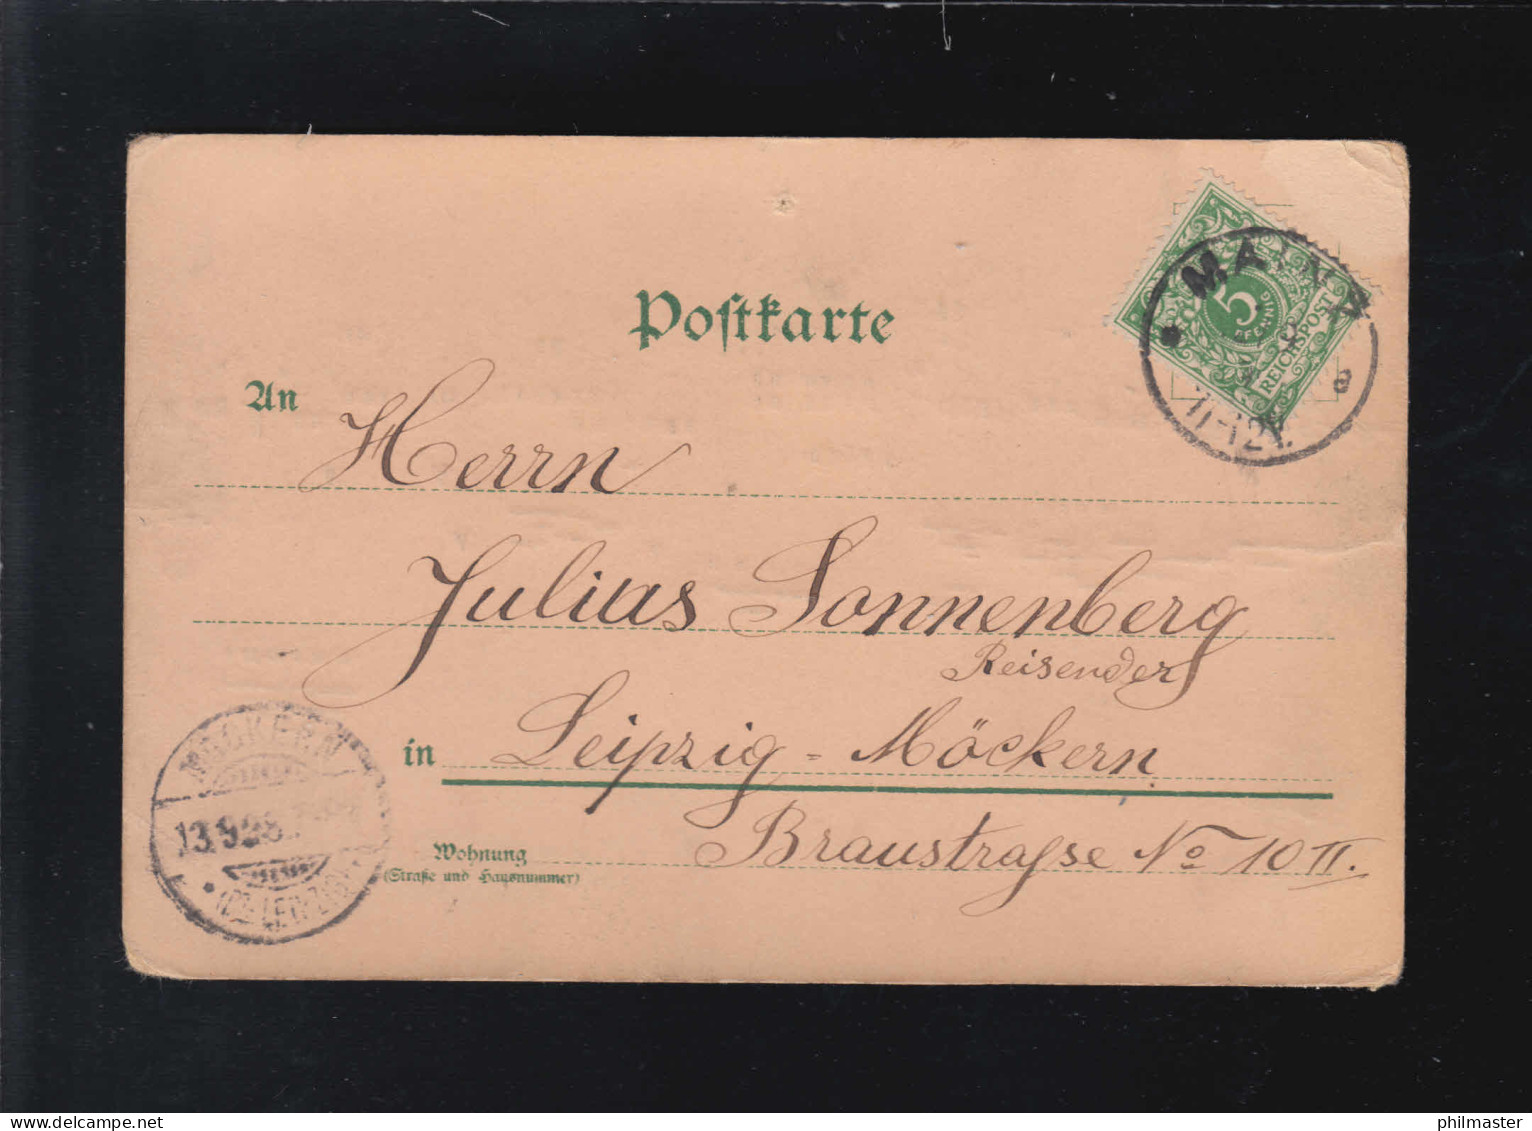 Postkarte
MAINZ
5
PFENNIG
REICHSPOST
11-12V.
An
Herrn
Julius Sonnenberg
Reisender
in Leipzig - Möckern
Braustrasse No 10 II.
Wohnung
(Straße und Hausnummer)
MÖCKERN
13.9.98.
(BZ. LEIPZIG)
philmaster